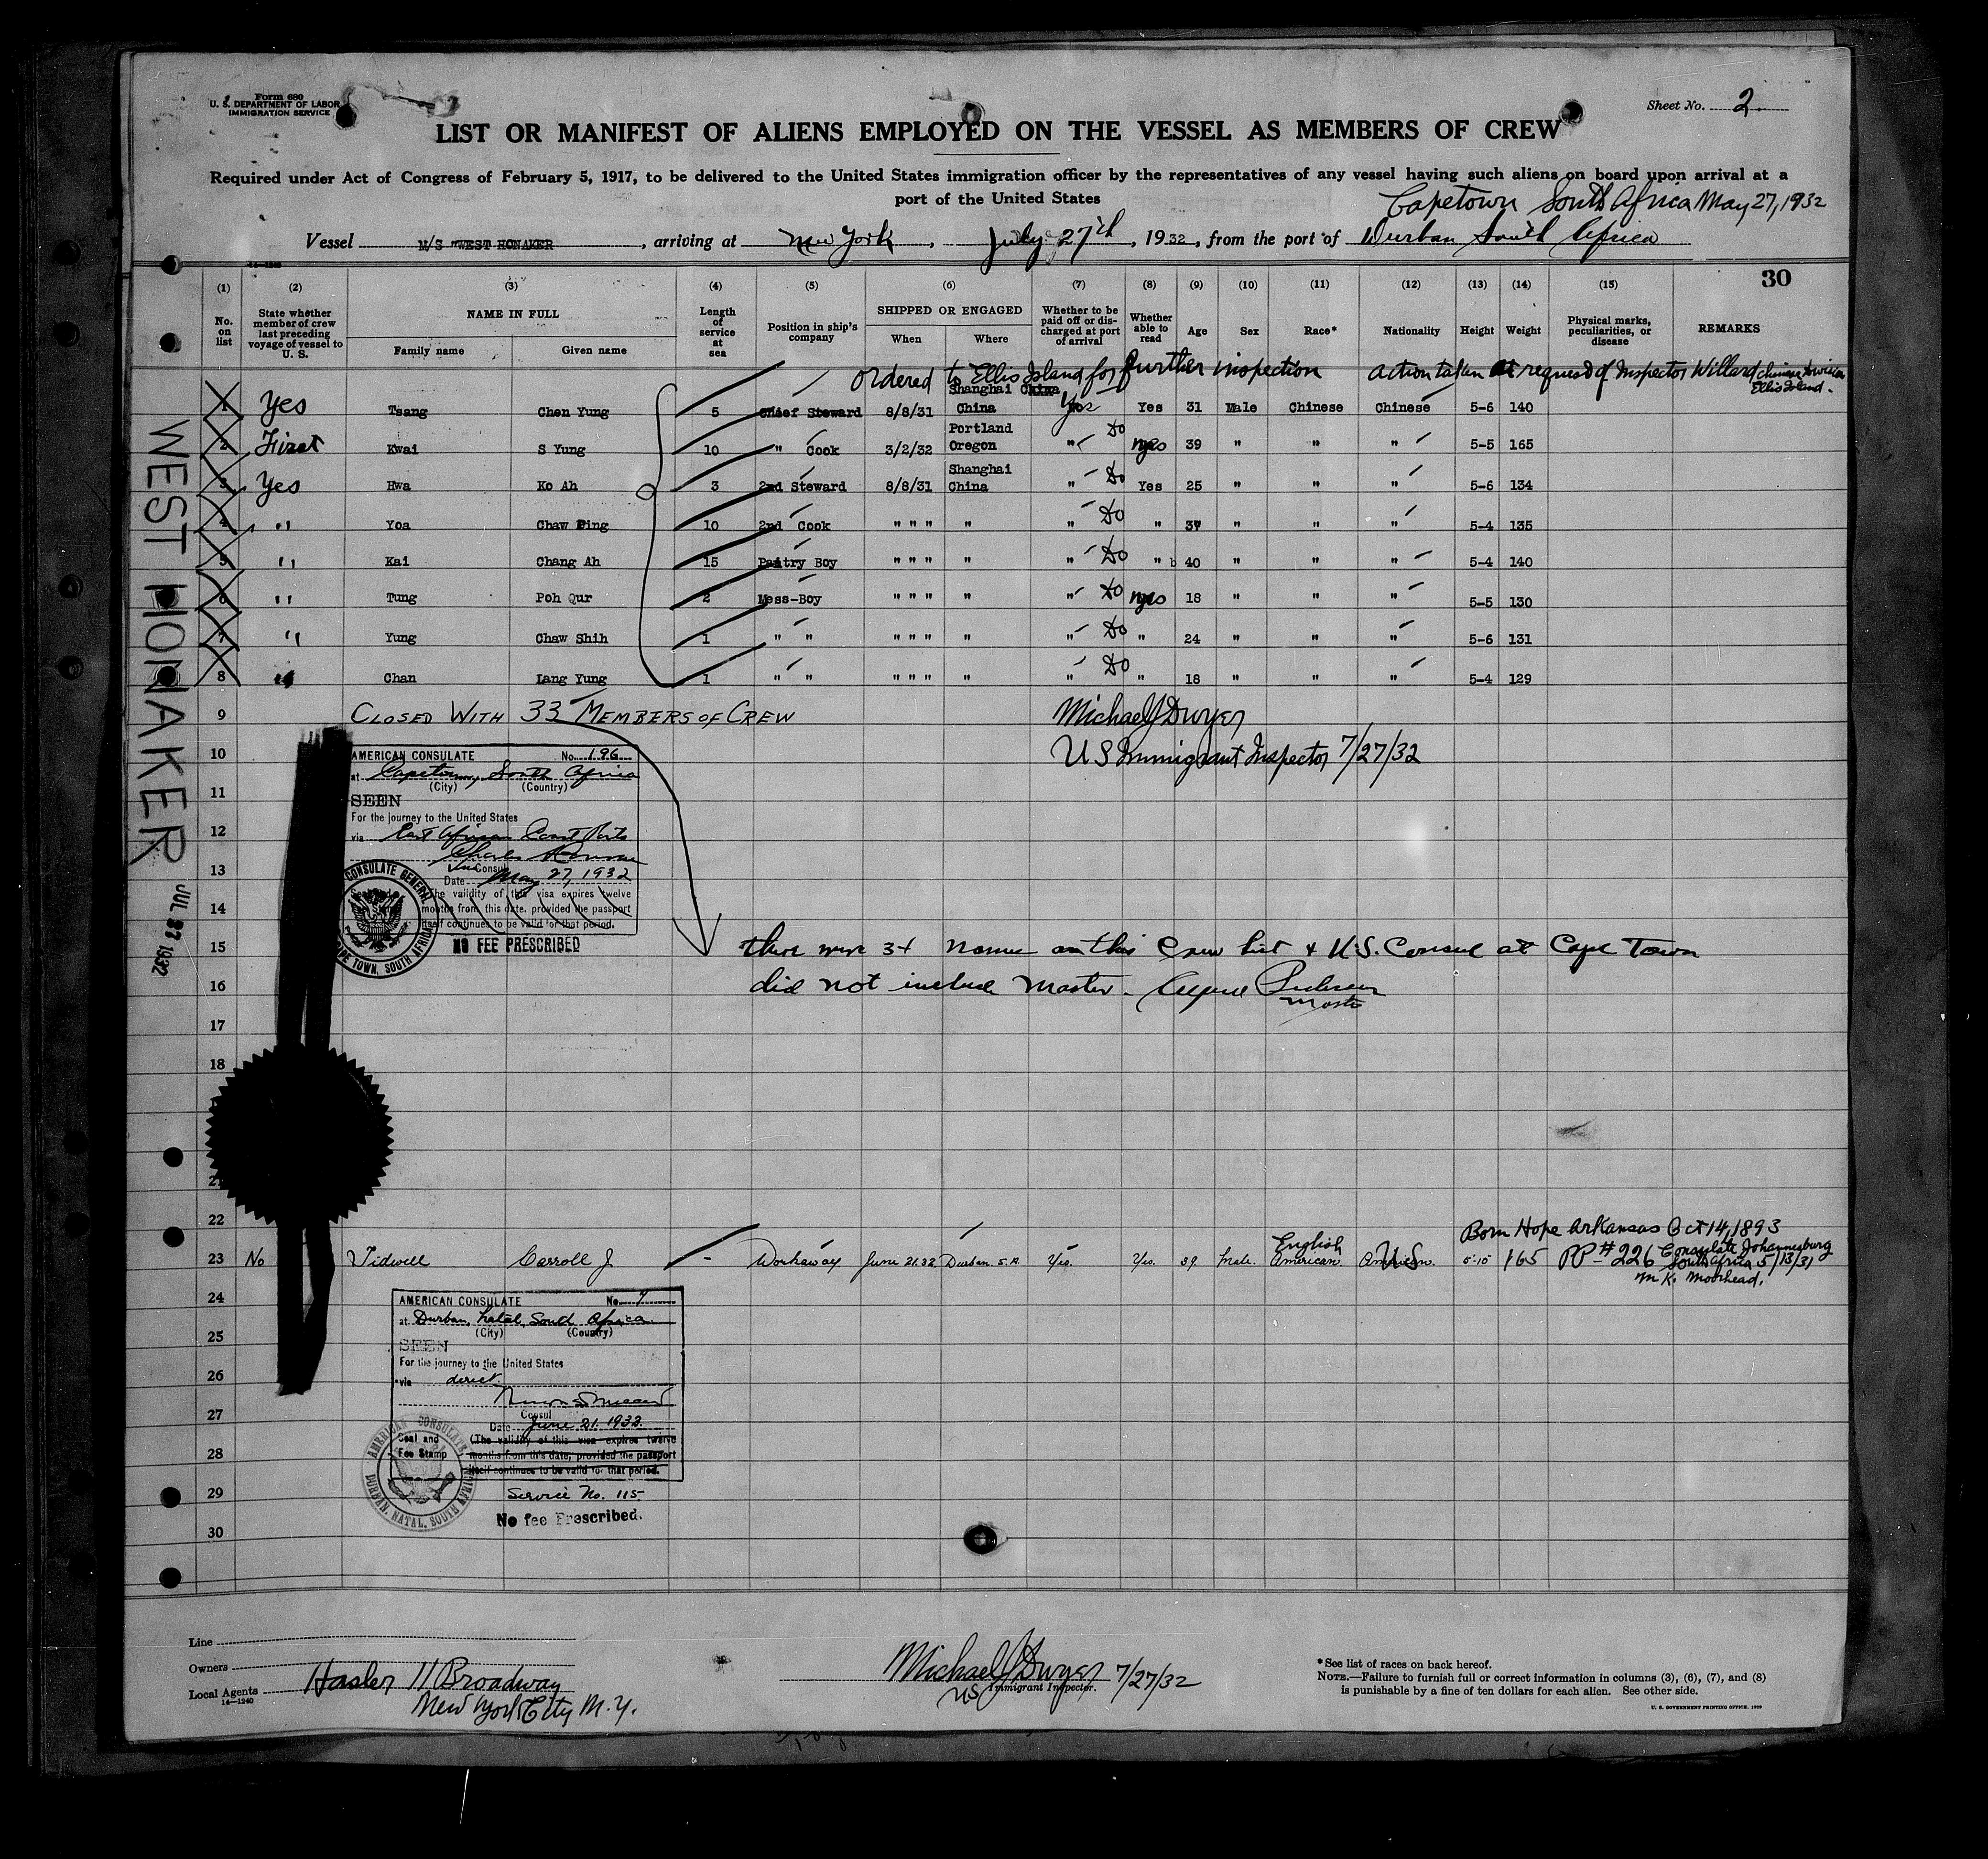 Form 680
U. S. DEPARTMENT OF LABOR
IMMIGRATION SERVICE
Sheet No. 2.
LIST OR MANIFEST OF ALIENS EMPLOYED ON THE VESSEL AS MEMBERS OF CREW
Required under Act of Congress of February 5, 1917, to be delivered to the United States immigration officer by the representatives of any vessel having such aliens on board upon arrival at a
port of the United States
Capetown South Africa May 27, 1932
Vessel M/S "WEST HONAKER , arriving at New York , July 27th , 1932 , from the port of Durban South Africa
14-1240
30
(1) (2) (3) (4) (5) (6) (7) (8) (9) (10) (11) (12) (13) (14) (15)
No. on list State whether member of crew last preceding voyage of vessel to U. S. NAME IN FULL Family name Given name Length of service at sea Position in ship's company SHIPPED OR ENGAGED When Where Whether to be paid off or discharged at port of arrival Whether able to read Age Sex Race* Nationality Height Weight Physical marks, peculiarities, or disease REMARKS
Ordered to Ellis Island for further inspection action taken at request of Inspector Willard Chinese Division
Ellis Island.
1 Yes Tsang Chen Yung 5 Chief Steward 8/8/31 Shanghai China China Yes Yes 31 Male Chinese Chinese 5-6 140
2 First Kwai S Yung 10 " Cook 3/2/32 Portland Oregon " Do 39 " " " 5-5 165
3 Yes Hwa Ko Ah 3 2nd Steward 8/8/31 Shanghai China " Do Yes 25 " " " 5-6 134
4 " Yoa Chaw Ping 10 2nd Cook " " " " " Do " 37 " " " 5-4 135
5 " Kai Chang Ah 15 Pantry Boy " " " " " Do " b 40 " " " 5-4 140
6 " Tung Poh Qur 2 Mess-Boy " " " " " Do 18 " " " 5-5 130
7 " Yung Chaw Shih 1 " " " " " " " Do " 24 " " " 5-6 131
8 " Chan Lang Yung 1 " " " " " " " Do " 18 " " " 5-4 129
9 CLOSED WITH 33 MEMBERS OF CREW Michael J Dwyer
10 U S Immigrant Inspector 7/27/32
AMERICAN CONSULATE No. 196
at Capetown, South Africa
(City) (Country)
11
SEEN
For the journey to the United States
12
via East African Coast Ports
Charles
Vice Consul
13
Date May 27, 1932
The validity of this visa expires twelve
14
months from this date, provided the passport
itself continues to be valid for that period.
CONSULATE GENERAL
CAPE TOWN, SOUTH AFRICA
NO FEE PRESCRIBED
15 There were 34 names on this Crew list & U.S. Consul at Cape Town
16 did not include Master. Pedersen
Master
17
18
21
22
Born Hope Arkansas Oct 14, 1893
23 No Tidwell Carroll J. - Workaway June 21.32 Durban. S.A. Yes. Yes. 39 Male. English American. American. U.S. 5-10 165 PP # 226 Consulate Johannesburg
South Africa 5/13/31
M. K. Moorhead.
24
AMERICAN CONSULATE No. 7
at Durban, Natal, South Africa.
(City) (Country)
25
SEEN
For the journey to the United States
26
via direct.
Consul
27
Date June 21. 1932.
Seal and Fee Stamp
(The validity of this visa expires twelve
28
months from this date, provided the passport
itself continues to be valid for that period.
AMERICAN CONSULATE,
DURBAN, NATAL, SOUTH AFRICA
29
Service No. 115
No fee Prescribed.
30
WEST HONAKER
JUL 27 1932
Line
Owners
Local Agents Hasler 11 Broadway
14-1240
New York City N.Y.
Michael J Dwyer 7/27/32
US Immigrant Inspector.
*See list of races on back hereof.
NOTE.—Failure to furnish full or correct information in columns (3), (6), (7), and (8)
is punishable by a fine of ten dollars for each alien. See other side.
U. S. GOVERNMENT PRINTING OFFICE. 1929